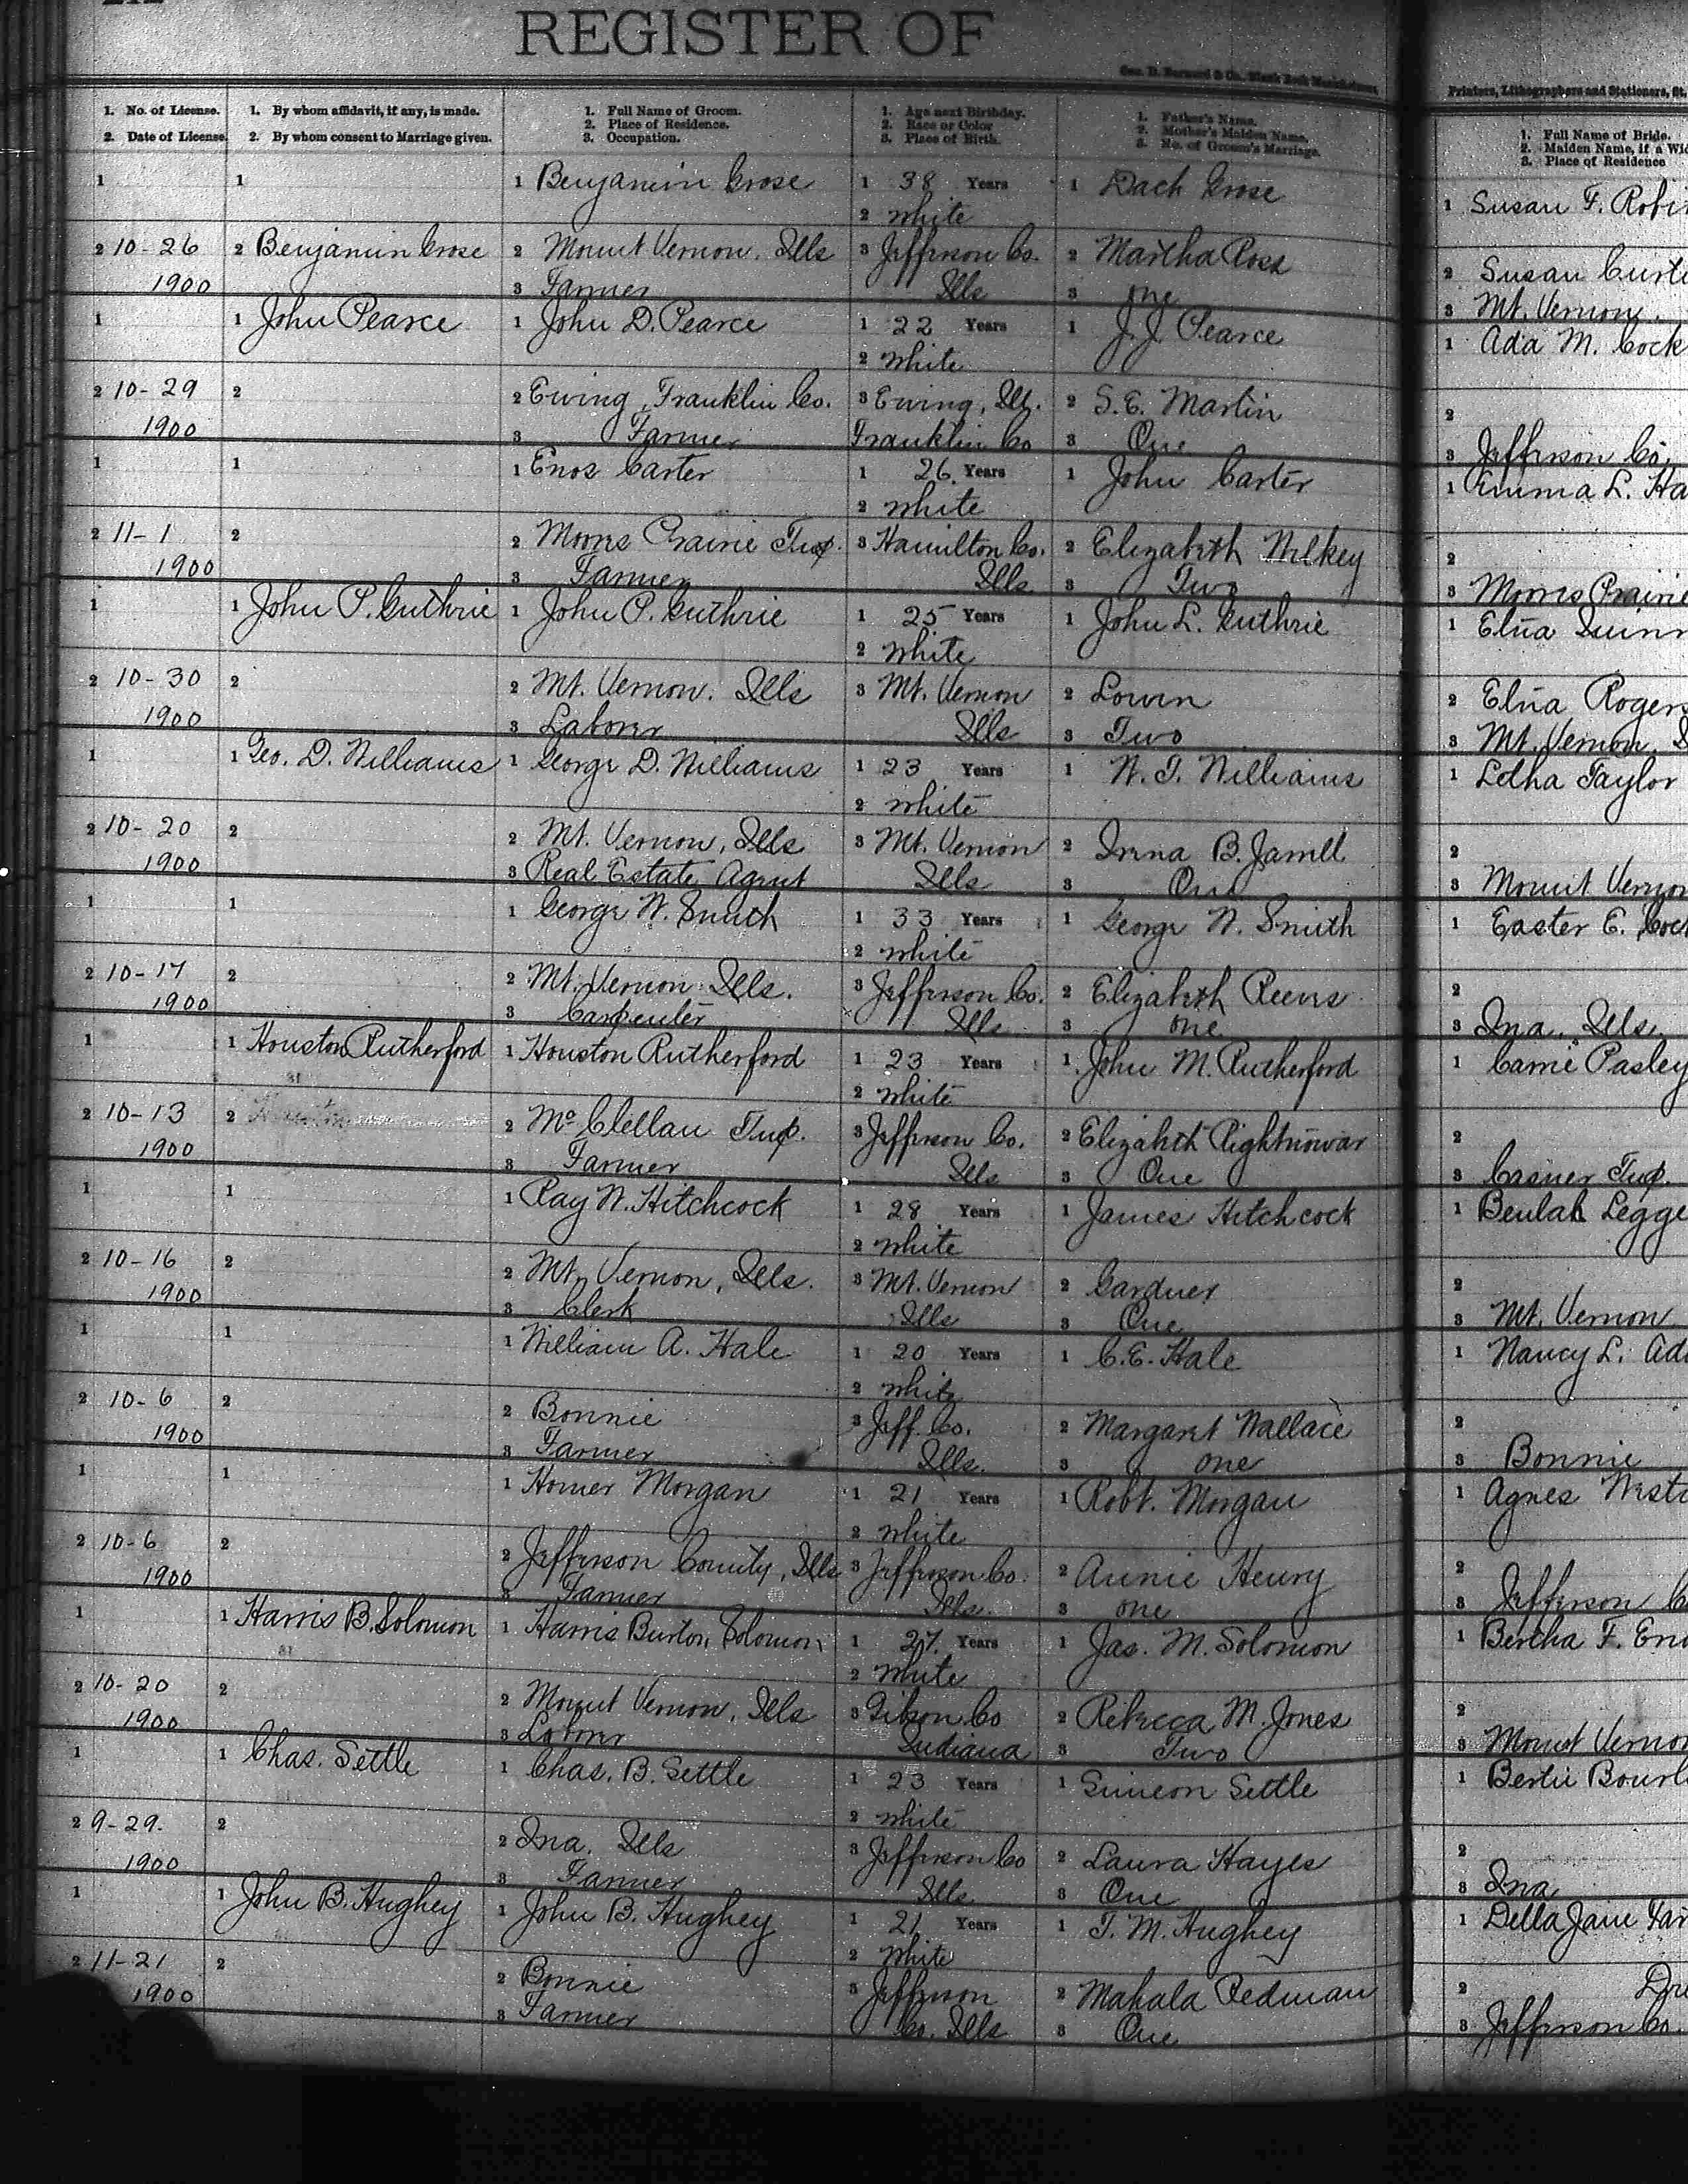 REGISTER OF
Geo. D. Barnard & Co., Blank Book
Printers, Lithographers and Stationers, St.
1. No. of License.
2. Date of License.
1. By whom affidavit, if any, is made.
2. By whom consent to Marriage given.
1. Full Name of Groom.
2. Place of Residence.
3. Occupation.
1. Age next Birthday.
2. Race or Color
3. Place of Birth.
1. Father's Name.
2. Mother's Maiden Name.
3. No. of Groom's Marriage.
1. Full Name of Bride.
2. Maiden Name, if a Wid
3. Place of Residence
1 1 1 Benjamin Grose 1 38 Years 1 Dach Grose 1 Susan F. Robi
2 White
2 10-26 2 Benjamin Grose 2 Mount Vernon, Ills 3 Jefferson Co. 2 Martha Ross 2 Susan Curti
1900 3 Farmer Ills 3 One 3 Mt. Vernon.
1 1 John Pearce 1 John D. Pearce 1 22 Years 1 J. J. Pearce 1 Ada M. Cock
2 White
2 10-29 2 2 Ewing, Franklin Co. 3 Ewing, Ill. 2 S. E. Martin 2
1900 3 Farmer Franklin Co 3 One 3 Jefferson Co,
1 1 1 Enos Carter 1 26 Years 1 John Carter 1 Emma L. Ha
2 White
2 11-1 2 2 Moores Prairie Twp. 3 Hamilton Co. 2 Elizabeth Wilkey 2
1900 3 Farmer Ills 3 Two 3 Moores Prairie
1 1 John P. Guthrie 1 John P. Guthrie 1 25 Years 1 John L. Guthrie 1 Elva Quinn
2 White
2 10-30 2 2 Mt. Vernon. Ills 3 Mt. Vernon 2 Lowen 2 Elva Rogers
1900 3 Laborer Ills 3 Two 3 Mt. Vernon,
1 1 Geo. D. Williams 1 George D. Williams 1 23 Years 1 W. T. Williams 1 Letha Taylor
2 White
2 10-20 2 2 Mt. Vernon, Ills 3 Mt. Vernon 2 Irena B. Jarrell 2
1900 3 Real Estate Agent Ills 3 One 3 Mount Vernon
1 1 1 George W. Smith 1 33 Years 1 George W. Smith 1 Easter E. Coc
2 White
2 10-17 2 2 Mt. Vernon Ills. 3 Jefferson Co. 2 Elizabeth Reeves 2
1900 3 Carpenter Ills 3 One 3 Ina, Ills.
1 1 Houston Rutherford 1 Houston Rutherford 1 23 Years 1 John M. Rutherford 1 Carrie Pasley
2 White
2 10-13 2 2 McClellan Twp. 3 Jefferson Co. 2 Elizabeth Rightnowar 2
1900 3 Farmer Ills 3 One 3 Casner Twp.
1 1 1 Ray W. Hitchcock 1 28 Years 1 James Hitchcock 1 Beulah Legge
2 White
2 10-16 2 2 Mt. Vernon, Ills. 3 Mt. Vernon 2 Gardner 2
1900 3 Clerk Ills 3 One 3 Mt. Vernon
1 1 1 William A. Hale 1 20 Years 1 C. E. Hale 1 Nancy L. Ad
2 White
2 10-6 2 2 Bonnie 3 Jeff. Co. 2 Margaret Wallace 2
1900 3 Farmer Ills. 3 One 3 Bonnie
1 1 1 Homer Morgan 1 21 Years 1 Robt. Morgan 1 Agnes West
2 White
2 10-6 2 2 Jefferson County, Ills 3 Jefferson Co. 2 Annie Henry 2
1900 3 Farmer Ills. 3 one 3 Jefferson C
1 1 Harris B. Solomon 1 Harris Burton Solomon 1 27 Years 1 Jas. M. Solomon 1 Bertha F.
2 White
2 10-20 2 2 Mount Vernon, Ills 3 Gibson Co 2 Rebecca M. Jones 2
1900 3 Laborer Indiana 3 Two 3 Mount Vernon
1 1 Chas. Settle 1 Chas. B. Settle 1 23 Years 1 Simeon Settle 1 Bertie Bourl
2 White
2 9-29. 2 2 Ina. Ills 3 Jefferson Co 2 Laura Hayes 2
1900 3 Farmer Ills. 3 One 3 Ina
1 1 John B. Hughey 1 John B. Hughey 1 21 Years 1 T. M. Hughey 1 Della Jane Far
2 White
2 11-21 2 2 Bonnie 3 Jefferson 2 Mahala Redman 2
1900 3 Farmer Co. Ills 3 One 3 Jefferson Co.